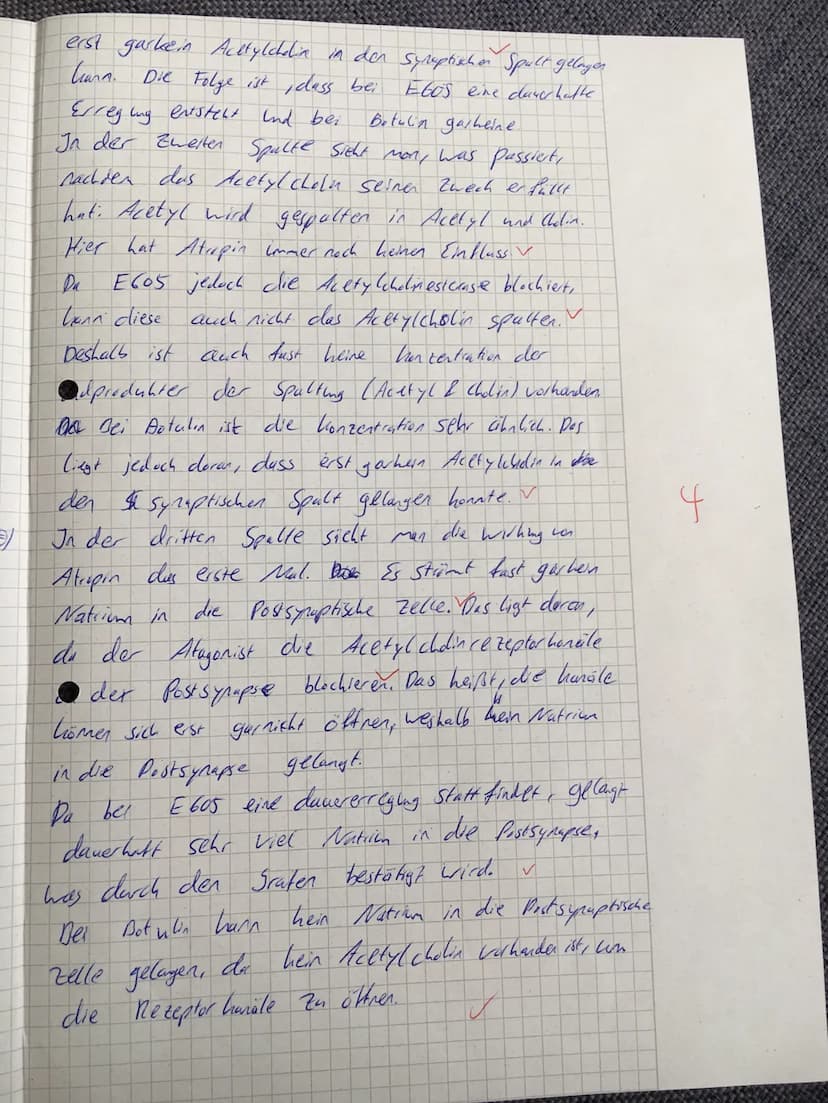 erst garkein Acetylcholin in den synaptischen Spalt gelangen
kann. Die Folge ist, dass bei E605 eine dauerhafte
Erregung entsteht und bei Botulin garkeine
In der zweiten Spalte sieht man, was passiert,
nachdem das Acetylcholin seinen Zweck erfüllt
hat: Acetyl wird gespalten in Acetyl und Cholin.
Hier hat Atropin immer noch keinen Einfluss.
Da E605 jedoch die Acetylcholinesterase blockiert,
kann diese auch nicht das Acetylcholin spalten.
Deshalb ist auch fast keine Konzentration der
dprodukter der Spaltung (Acetyl & Cholin) vorhanden.
Bei Botulin ist die Konzentration sehr ähnlich. Das
liegt jedoch daran, dass erst garkein Acetylcholin in
den synaptischen Spalt gelangen konnte.
4
In der dritten Spalte sieht man die Wirkung von
Atropin das erste Mal. Es strömt fast garkein
Natrium in die Postsynaptische Zelle. Das ligt daran,
da der Atagonist die Acetylcholinrezeptorkanäle
der Postsynapse blockieren. Das heißt, die Kanäle
können sich erst garnicht öffnen, weshalb kein Natrium
in die Postsynapse gelangt.
Da bei E605 eine dauererregung stattfindet, gelangt
dauerhaft sehr viel Natrium in die Postsynapse,
was durch den Grafen bestätigt wird.
Bei Botulin kann kein Natrium in die Postsynaptische
Zelle gelangen, da kein Acetylcholin vorhanden ist, um
die Rezeptorkanäle zu öffnen.